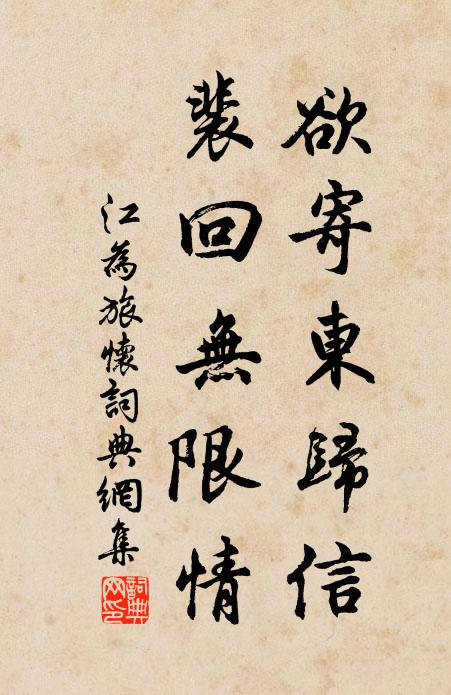 欲寄東歸信
裴回無限情
江為旅懷詞典網集
詞典網印